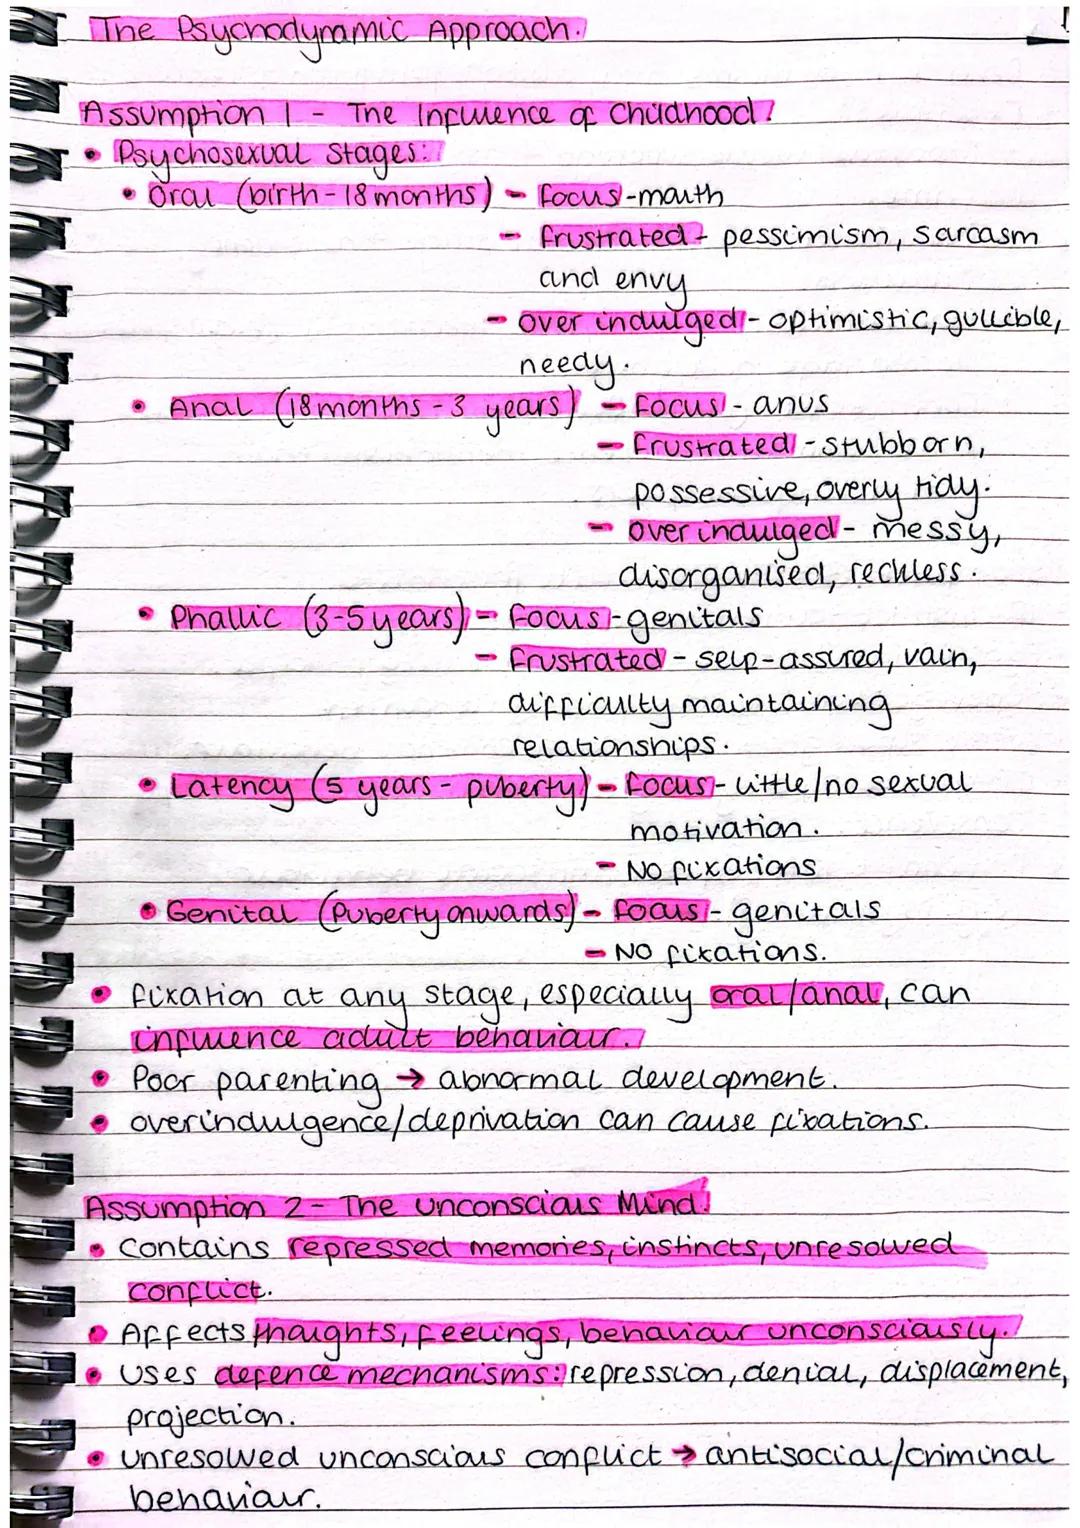 The Psychodynamic Approach.
Assumption 1 - The Influence of Childhood:
• Psychosexual Stages:
• Oral (birth - 18 months) - Focus - mouth
- Frustrated - pessimism, sarcasm
and envy
- over indulged - optimistic, gullible,
needy.
• Anal (18 months - 3 years) - Focus - anus
- Frustrated - stubborn,
possessive, overly tidy.
- over indulged - messy,
disorganised, reckless.
• Phallic (3-5 years) - Focus - genitals
- Frustrated - self-assured, vain,
difficulty maintaining
relationships.
• Latency (5 years - puberty) - Focus - little/no sexual
motivation.
- No fixations
• Genital (Puberty onwards) - Focus - genitals
- No fixations.
• fixation at any stage, especially oral/anal, can
influence adult behaviour.
• Poor parenting → abnormal development.
• overindulgence/deprivation can cause fixations.
Assumption 2 - The Unconscious Mind:
• Contains repressed memories, instincts, unresolved
conflict.
• Affects thoughts, feelings, behaviour unconsciously.
• Uses defence mechanisms: repression, denial, displacement,
projection.
• unresolved unconscious conflict → antisocial/criminal
behaviour.